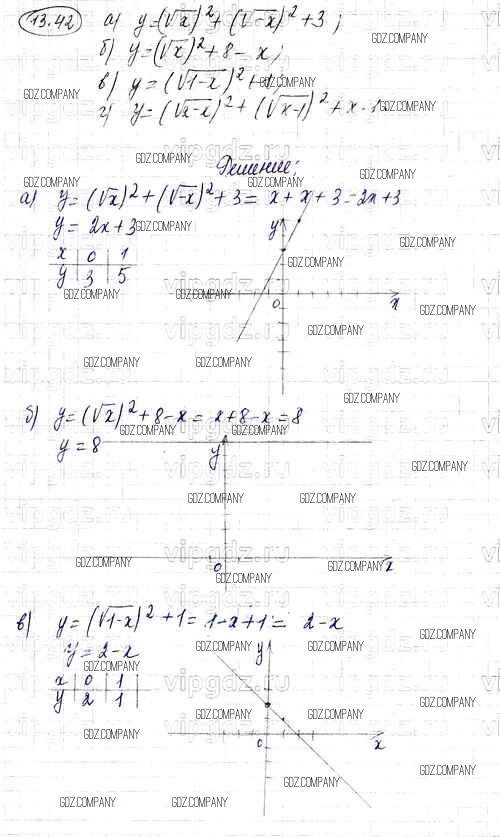 13.42 а) y=(√x)²+(√-x)²+3;
б) y=(√x)²+8-x;
в) y=(√1-x)²+1;
г) y=(√x-x)²+(√x-1)²+x-1.
Решение:
а) y=(√x)²+(√-x)²+3= x+x+3=2x+3
y= 2x+3
x | 0 | 1
y | 3 | 5
y
0
x
б) y=(√x)²+8-x= x+8-x=8
y=8
y
0
x
в) y=(√1-x)²+1= 1-x+1= 2-x
y=2-x
x | 0 | 1
y | 2 | 1
y
0
x
GDZ.COMPANY
vipgdz.ru